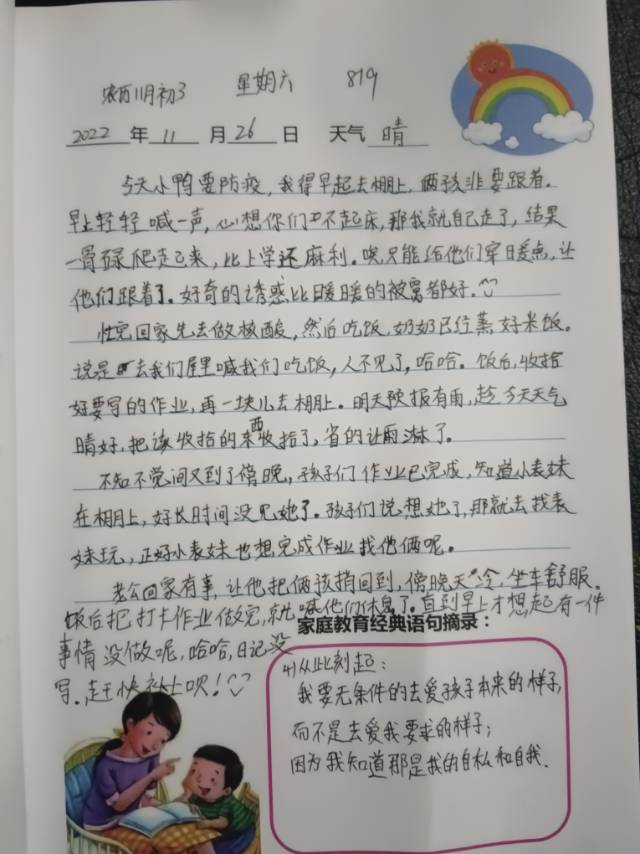 农历11月初3 星期六 819
2022 年 11 月 26 日 天气 晴
今天小鸭要防疫，我得早起去棚上，两孩非要跟着。
早上轻轻喊一声，心想你们也不起床，那我就自己走了，结果
一骨碌爬起来，比上学还麻利。唉，只能给他们穿暖点，让
他们跟着了。好奇的诱惑比暖暖的被窝都好。
忙完回家先去做核酸，然后吃饭，奶奶已经蒸好米饭。
说是去我们屋里喊我们吃饭，人不见了，哈哈。饭后，收拾
好要写的作业，再一块儿去棚上。明天预报有雨，趁今天天气
晴好，把该收拾的东西收拾了，省的让雨淋了。
不知不觉间又到了傍晚，孩子们作业已完成，知道小表妹
在棚上，好长时间没见她了。孩子们说，想她了，那就去找表
妹玩，正好小表妹也想完成作业找他俩呢。
老公回家有事，让他把俩孩捎回到，傍晚天冷，坐车舒服。
饭后把打卡作业做完，就喊他们休息了。直到早上才想起有一件
事情没做呢，哈哈，日记没
写。赶快补上呗！
家庭教育经典语句摘录：
从此刻起：
我要无条件的去爱孩子本来的样子，
而不是去爱我要求的样子；
因为我知道那是我的自私和自我.